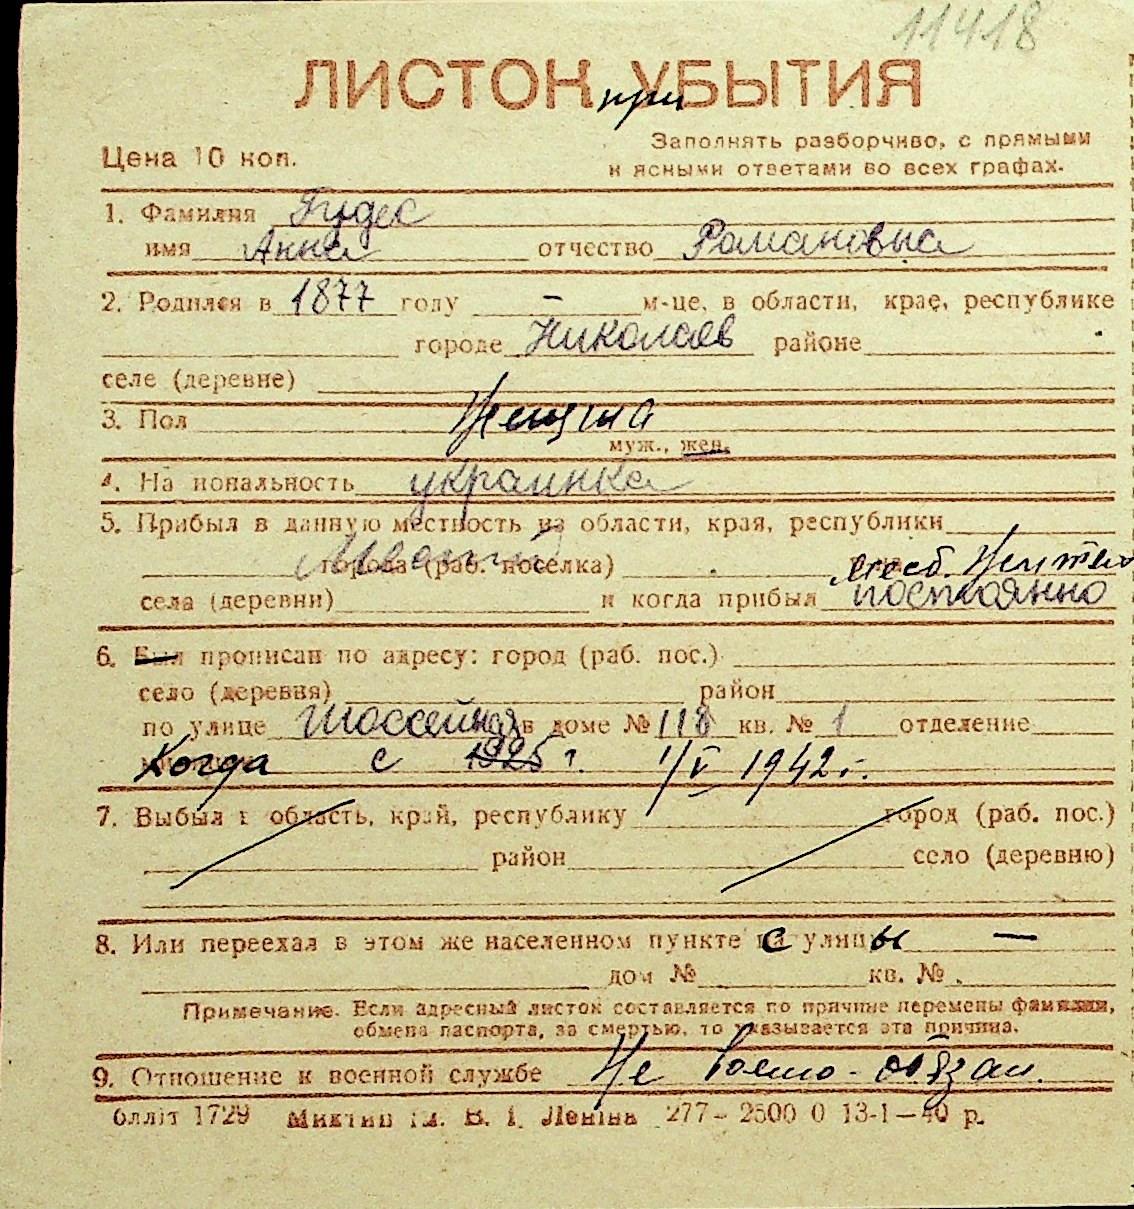 11418
ЛИСТОК при УБЫТИЯ
Цена 10 коп.
Заполнять разборчиво, с прямыми
и ясными ответами во всех графах.
1. Фамилия Гудес
имя Анна отчество Романовна
2. Родился в 1877 году — м-це, в области, крае, республике
городе Николаев районе
селе (деревне)
3. Пол Женщина
муж., жен.
4. На иональность украинка
5. Прибыл в данную местность из области, края, республики
города (раб. поселка) Жител
села (деревни) и когда прибыл постоянно
6. Был прописан по адресу: город (раб. пос.)
село (деревня) район
по улице Шоссейная в доме № 118 кв. № 1 отделение
Когда с 1925 г. 1/V 1942 г.
7. Выбыл в область, край, республику город (раб. пос.)
район село (деревню)
8. Или переехал в этом же населенном пункте с улицы —
дом № кв. №
Примечание. Если адресный листок составляется по причине перемены фамилии,
обмена паспорта, за смертью, то указывается эта причина.
9. Отношение к военной службе Не военно-обязан.
блліт 1729 В. І. Леніна 277— 2500 0 13-1—40 р.